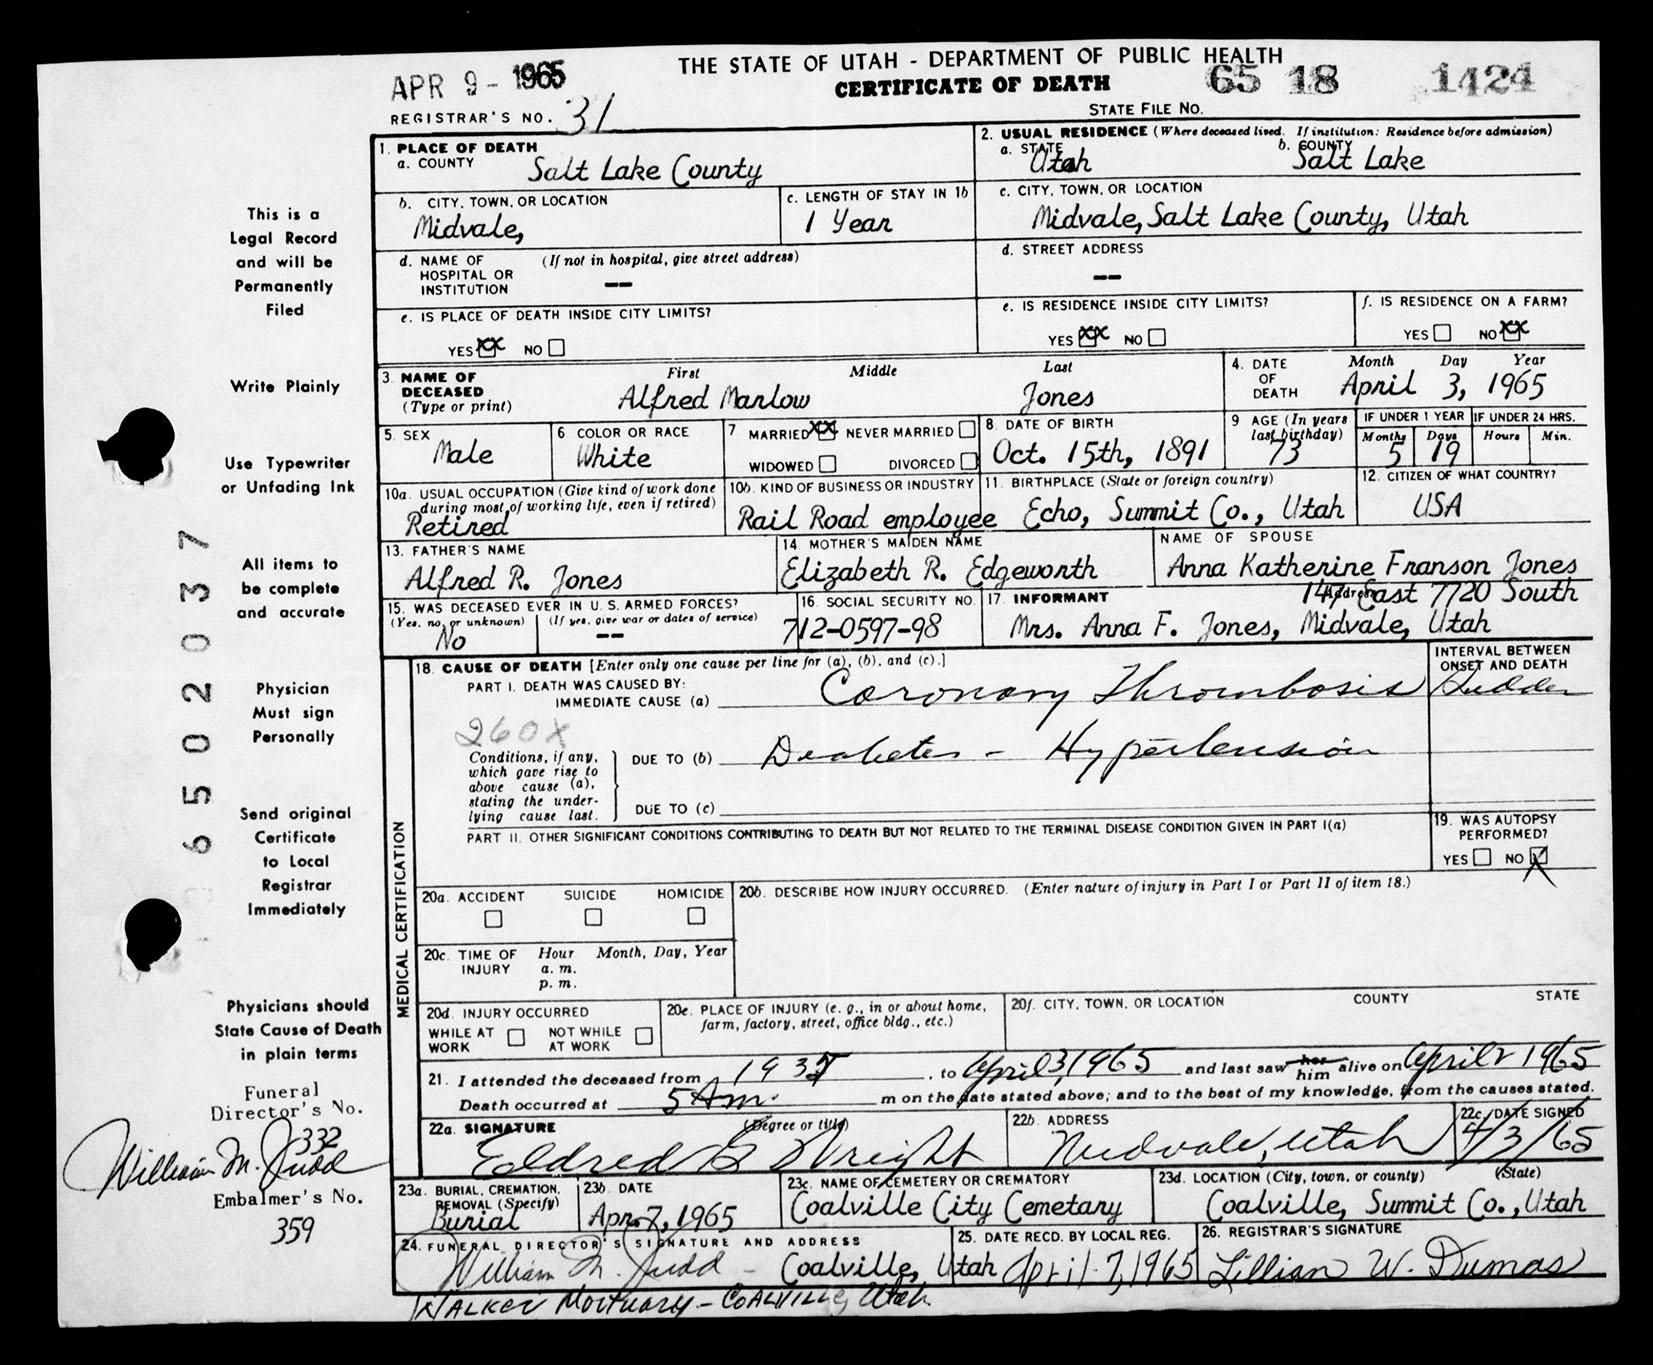 THE STATE OF UTAH - DEPARTMENT OF PUBLIC HEALTH
APR 9 - 1965
CERTIFICATE OF DEATH
65 18 1424
REGISTRAR'S NO. 31
STATE FILE NO.
1. PLACE OF DEATH
a. COUNTY Salt Lake County
2. USUAL RESIDENCE (Where deceased lived. If institution: Residence before admission)
a. STATE Utah b. COUNTY Salt Lake
b. CITY, TOWN, OR LOCATION Midvale,
c. LENGTH OF STAY IN 1b 1 Year
c. CITY, TOWN, OR LOCATION Midvale, Salt Lake County, Utah
d. NAME OF HOSPITAL OR INSTITUTION (If not in hospital, give street address) --
d. STREET ADDRESS --
e. IS PLACE OF DEATH INSIDE CITY LIMITS?
YES XX NO
e. IS RESIDENCE INSIDE CITY LIMITS?
YES XX NO
f. IS RESIDENCE ON A FARM?
YES NO XX
3. NAME OF DECEASED (Type or print)
First Middle Last
Alfred Marlow Jones
4. DATE OF DEATH
Month Day Year
April 3, 1965
5. SEX Male
6 COLOR OR RACE White
7 MARRIED XX NEVER MARRIED
WIDOWED DIVORCED
8. DATE OF BIRTH Oct. 15th, 1891
9 AGE (In years last birthday) 73
IF UNDER 1 YEAR IF UNDER 24 HRS.
Months 5 Days 19 Hours Min.
10a. USUAL OCCUPATION (Give kind of work done during most of working life, even if retired) Retired
10b. KIND OF BUSINESS OR INDUSTRY Rail Road employee
11. BIRTHPLACE (State or foreign country) Echo, Summit Co., Utah
12. CITIZEN OF WHAT COUNTRY? USA
13. FATHER'S NAME Alfred R. Jones
14. MOTHER'S MAIDEN NAME Elizabeth R. Edgeworth
NAME OF SPOUSE Anna Katherine Franson Jones
15. WAS DECEASED EVER IN U. S. ARMED FORCES?
(Yes, no, or unknown) No (If yes, give war or dates of service) --
16. SOCIAL SECURITY NO. 712-0597-98
17. INFORMANT Address 147 East 7720 South
Mrs. Anna F. Jones, Midvale, Utah
MEDICAL CERTIFICATION
18. CAUSE OF DEATH [Enter only one cause per line for (a), (b), and (c).]
INTERVAL BETWEEN ONSET AND DEATH
PART I. DEATH WAS CAUSED BY:
IMMEDIATE CAUSE (a) Coronary Thrombosis Sudden
260X
Conditions, if any, which gave rise to above cause (a), stating the underlying cause last.
DUE TO (b) Diabetes - Hypertension
DUE TO (c)
PART II. OTHER SIGNIFICANT CONDITIONS CONTRIBUTING TO DEATH BUT NOT RELATED TO THE TERMINAL DISEASE CONDITION GIVEN IN PART I(a)
19. WAS AUTOPSY PERFORMED?
YES NO X
20a. ACCIDENT SUICIDE HOMICIDE
20b. DESCRIBE HOW INJURY OCCURRED. (Enter nature of injury in Part I or Part II of item 18.)
20c. TIME OF INJURY Hour Month, Day, Year
a. m.
p. m.
20d. INJURY OCCURRED
WHILE AT WORK NOT WHILE AT WORK
20e. PLACE OF INJURY (e. g., in or about home, farm, factory, street, office bldg., etc.)
20f. CITY, TOWN, OR LOCATION COUNTY STATE
21. I attended the deceased from to April 3, 1965 and last saw her him alive on April 2 1965
Death occurred at 5 Am. m on the date stated above; and to the best of my knowledge, from the causes stated.
22a. SIGNATURE (Degree or title) Eldred G Wright
22b. ADDRESS Midvale, Utah
22c. DATE SIGNED 4/3/65
23a. BURIAL, CREMATION, REMOVAL (Specify) Burial
23b. DATE Apr. 7, 1965
23c. NAME OF CEMETERY OR CREMATORY Coalville City Cemetary
23d. LOCATION (City, town, or county) (State) Coalville, Summit Co., Utah
24. FUNERAL DIRECTOR'S SIGNATURE AND ADDRESS
William M. Judd - Coalville, Utah
25. DATE RECD. BY LOCAL REG. April 7, 1965
26. REGISTRAR'S SIGNATURE Lillian W. Dumas
Walker Mortuary - Coalville, Utah
This is a
Legal Record
and will be
Permanently
Filed
Write Plainly
Use Typewriter
or Unfading Ink
All items to
be complete
and accurate
Physician
Must sign
Personally
Send original
Certificate
to Local
Registrar
Immediately
Physicians should
State Cause of Death
in plain terms
Funeral
Director's No.
332
William M. Judd
Embalmer's No.
359
6502037